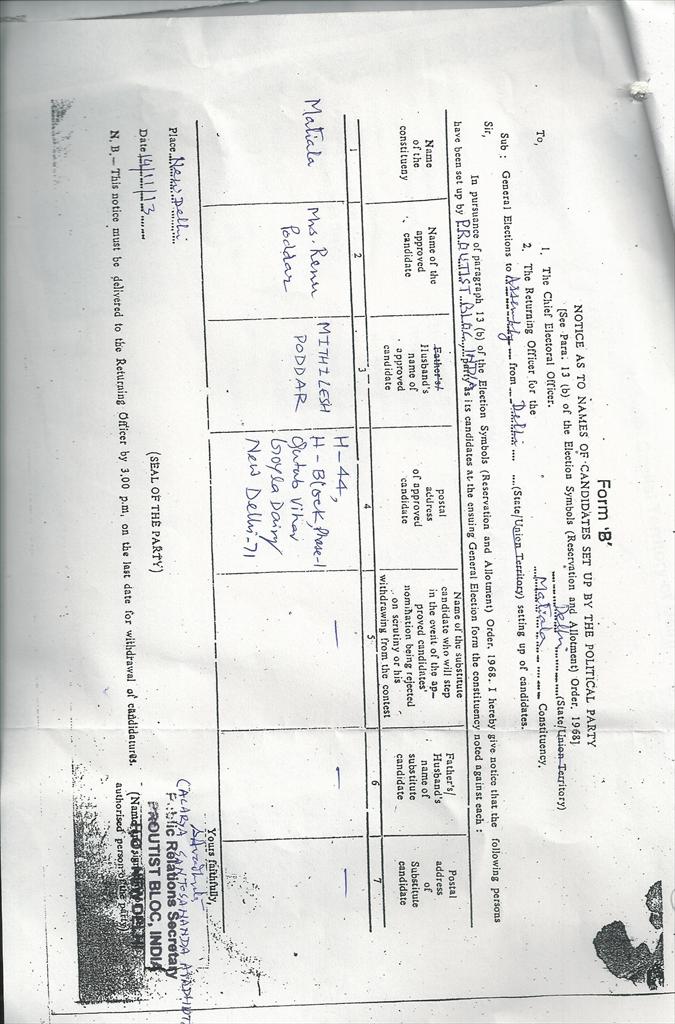 Form 'B'
NOTICE AS TO NAMES OF CANDIDATES SET UP BY THE POLITICAL PARTY
[See Para. 13 (b) of the Election Symbols (Reservation and Allotment) Order, 1968]
To,
1. The Chief Electoral Officer, Delhi (State/Union Territory)
2. The Returning Officer for the Matiala Constituency.
Sub : General Elections to Assembly from Delhi (State/Union Territory) setting up of candidates.
Sir,
In pursuance of paragraph 13 (b) of the Election Symbols (Reservation and Allotment) Order, 1968, I hereby give notice that the following persons
have been set up by PROUTIST BLOC, INDIA party as its candidates at the ensuing General Election form the constituency noted against each :
Name
of the
constitueny
Name of the
approved
candidate
Father's/
Husband's
name of
approved
candidate
postal
address
of approved
candidate
Name of the substitute
candidate who will step
in the event of the ap-
proved candidates'
nomination being rejected
on scrutiny or his
withdrawing from the contest
Father's/
Husband's
name of
substitute
candidate
Postal
address
of
Substitute
candidate
1 2 3 4 5 6 7
Matiala
Mrs. Renu
Poddar
MITHILESH
PODDAR
H-44,
H-Block, Phase-I
Qutub Vihar
Goyla Dairy
New Delhi-71
—
—
—
Place New Delhi
Date 14/11/13
(SEAL OF THE PARTY)
Yours faithfully,
(ACARYA SANTOSANANDA AVADHUTA
Public Relations Secretary
PROUTIST BLOC, INDIA
H.O. NEW DELHI
(Name and
authorised person of the party)
N. B.— This notice must be delivered to the Returning Officer by 3.00 p.m. on the last date for withdrawal of candidatures.